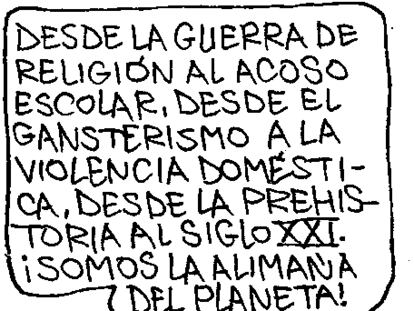 DESDE LA GUERRA DE
RELIGIÓN AL ACOSO
ESCOLAR, DESDE EL
GANSTERISMO A LA
VIOLENCIA DOMÉSTI-
CA, DESDE LA PREHIS-
TORIA AL SIGLO XXI.
¡SOMOS LA ALIMAÑA
DEL PLANETA!